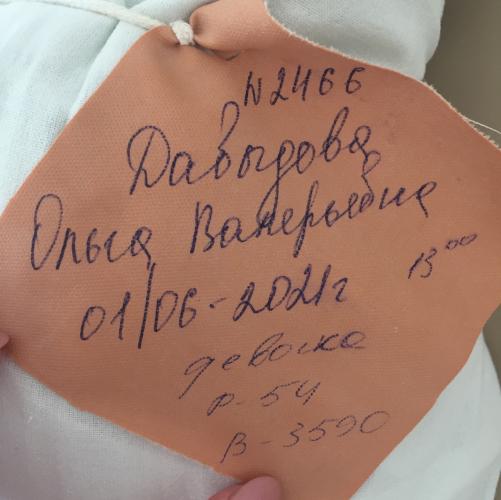 N2466
Давыдова
Ольга Валерьевна
01/06-2021г 13⁰⁰
девочка
р-54
в-3590